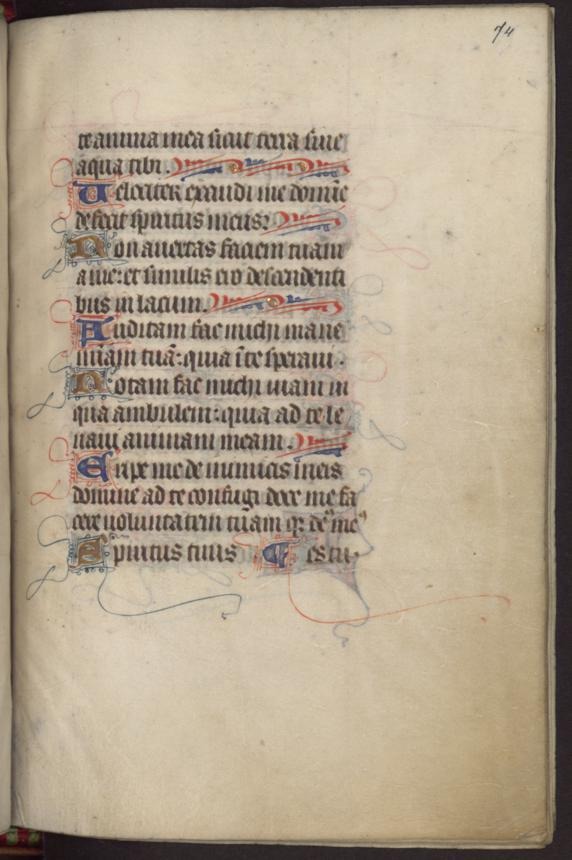 74
te anima mea sicut terra sine
aqua tibi.
Uelociter exaudi me domine
defecit spiritus meus:
Non auertas faciem tuam
a me: et similis ero descendenti
bus in lacum.
Auditam fac michi mane
miam tuā: quia ī te speraui.
Notam fac michi uiam in
qua ambulem: quia ad te le
uaui animam meam.
Eripe me de inimicis meis
domine ad te confugi doce me fa
cere uoluntatem tuam qz deus meus
spiritus tuus es tu.